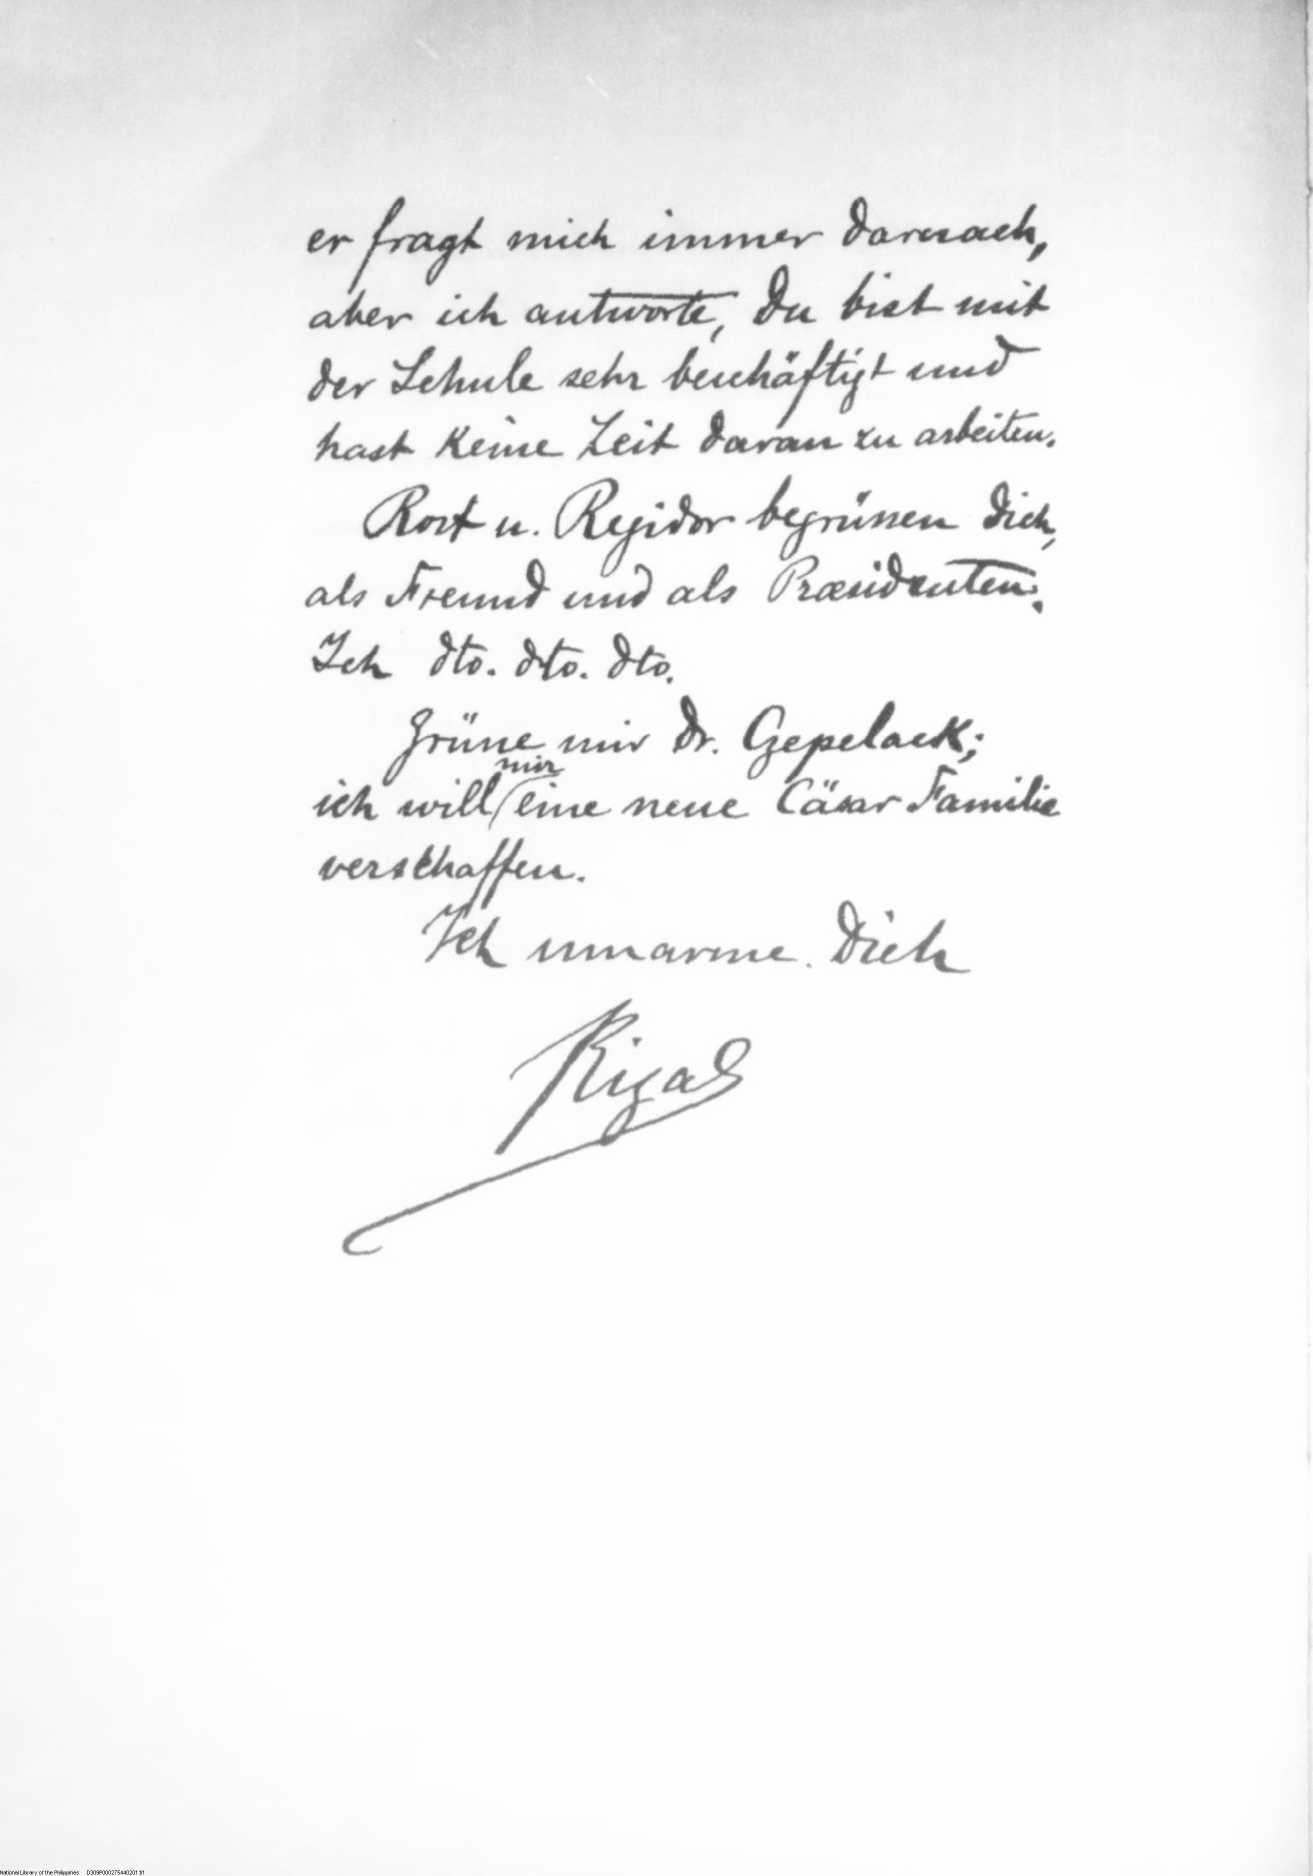 er fragt mich immer darnach,
aber ich antworte, Du bist mit
der Schule sehr beschäftigt und
hast keine Zeit daran zu arbeiten.
Rost u. Regidor begrüssen Dich,
als Freund und als Præsidenten.
Ich dto. dto. dto.
Grüsse mir Dr. Gepelack;
mir
ich will eine neue Cäsar Familie
verschaffen.
Ich umarme Dich
Rizal
National Library of the Philippines D309P0002754402011/1